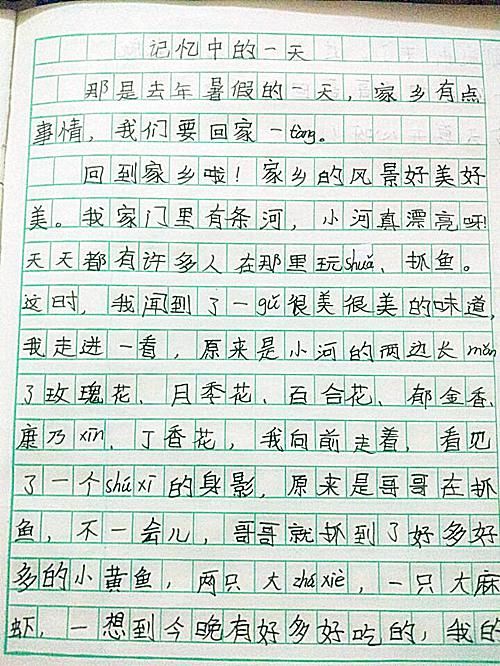 记忆中的一天
那是去年暑假的一天，家乡有点
事情，我们要回家一tàng。
回到家乡啦！家乡的风景好美好
美。我家门里有条河，小河真漂亮呀!
天天都有许多人在那里玩shuǎ、抓鱼。
这时，我闻到了一gǔ很美很美的味道,
我走进一看，原来是小河的两边长mǎn
了玫瑰花、月季花、百合花、郁金香、
康乃xīn、丁香花，我向前走着，看见
了一个shú xī的身影，原来是哥哥在抓
鱼，不一会儿，哥哥就抓到了好多好
多的小黄鱼，两只大zhá xiè，一只大麻
虾，一想到今晚有好多好吃的，我的